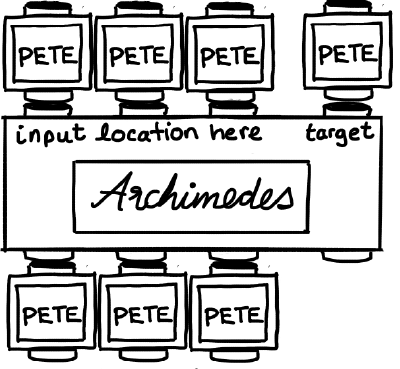 PETE PETE PETE PETE
input location here target
Archimedes
PETE PETE PETE